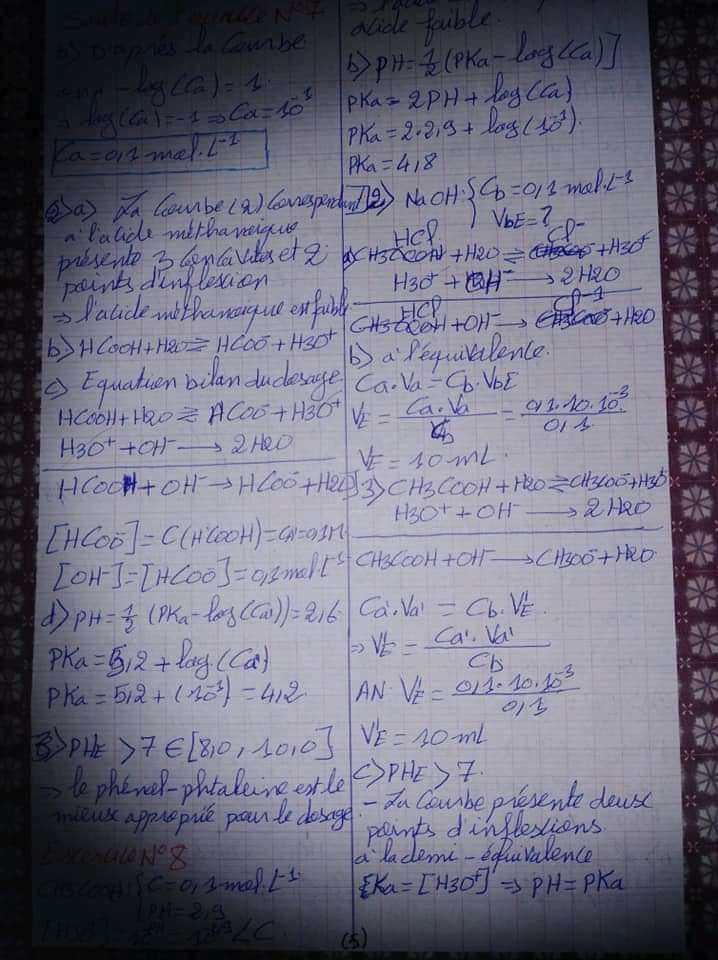 Suite de l'exercice N°7
b) D'après la Courbe
on a - log(Ca) = 1
→ log(Ca) = -1 ⇒ Ca = 10⁻¹
Ca = 0,1 mol.L⁻¹
2) a) La Courbe (2) Correspendant
à l'acide méthanoïque
présente 3 concavités et 2
points d'inflexion
→ l'acide méthanoïque est faible
b) HCOOH + H2O ⇌ HCOO⁻ + H3O⁺
c) Equation bilan du dosage
HCOOH + H2O ⇌ HCOO⁻ + H3O⁺
H3O⁺ + OH⁻ → 2H2O
HCOOH + OH⁻ → HCOO⁻ + H2O
[HCOO⁻] = C(HCOOH) = Ca = 0,1M
[OH⁻] = [HCOO⁻] = 0,1 mol L⁻¹
d) pH = 1/2 (PKa - log(Ca')) = 2,6
PKa = 5,2 + log.(Ca')
PKa = 5,2 + (10⁻¹) = 4,2
3) PHE > 7 ∈ [8,0, 10,0]
→ le phénol-phtaleine est le
mieux approprié pour le dosage
Exercice N°8
CH3COOH: { C = 0,1 mol.L⁻¹
PH = 2,9
acide faible.
b) pH = 1/2 (PKa - log(Ca)]
PKa = 2PH + log(Ca)
PKa = 2×2,9 + log(10⁻¹)
PKa = 4,8
I 2) NaOH: { Cb = 0,1 mol.L⁻¹
VbE = ?
HCl Cl⁻
a) CH3COOH + H2O ⇌ CH3COO⁻ + H3O⁺
H3O⁺ + OH⁻ → 2H2O
HCl Cl⁻
CH3COOH + OH⁻ → CH3COO⁻ + H2O
b) à l'équivalence.
Ca.Va = Cb.VbE
VE = Ca.Va / Cb = 0,1.10.10⁻³ / 0,1
VE = 10 mL
3) CH3COOH + H2O ⇌ CH3COO⁻ + H3O⁺
H3O⁺ + OH⁻ → 2H2O
CH3COOH + OH⁻ → CH3OO⁻ + H2O
Ca'.Va' = Cb.V'E
⇒ V'E = Ca'.Va' / Cb
AN: V'E = 0,1.10.10⁻³ / 0,1
V'E = 10 mL
c) PHE > 7.
- La Courbe présente deux
points d'inflexions
à la demi-équivalence
[Ka = [H3O⁺] ⇒ PH = PKa
(5)